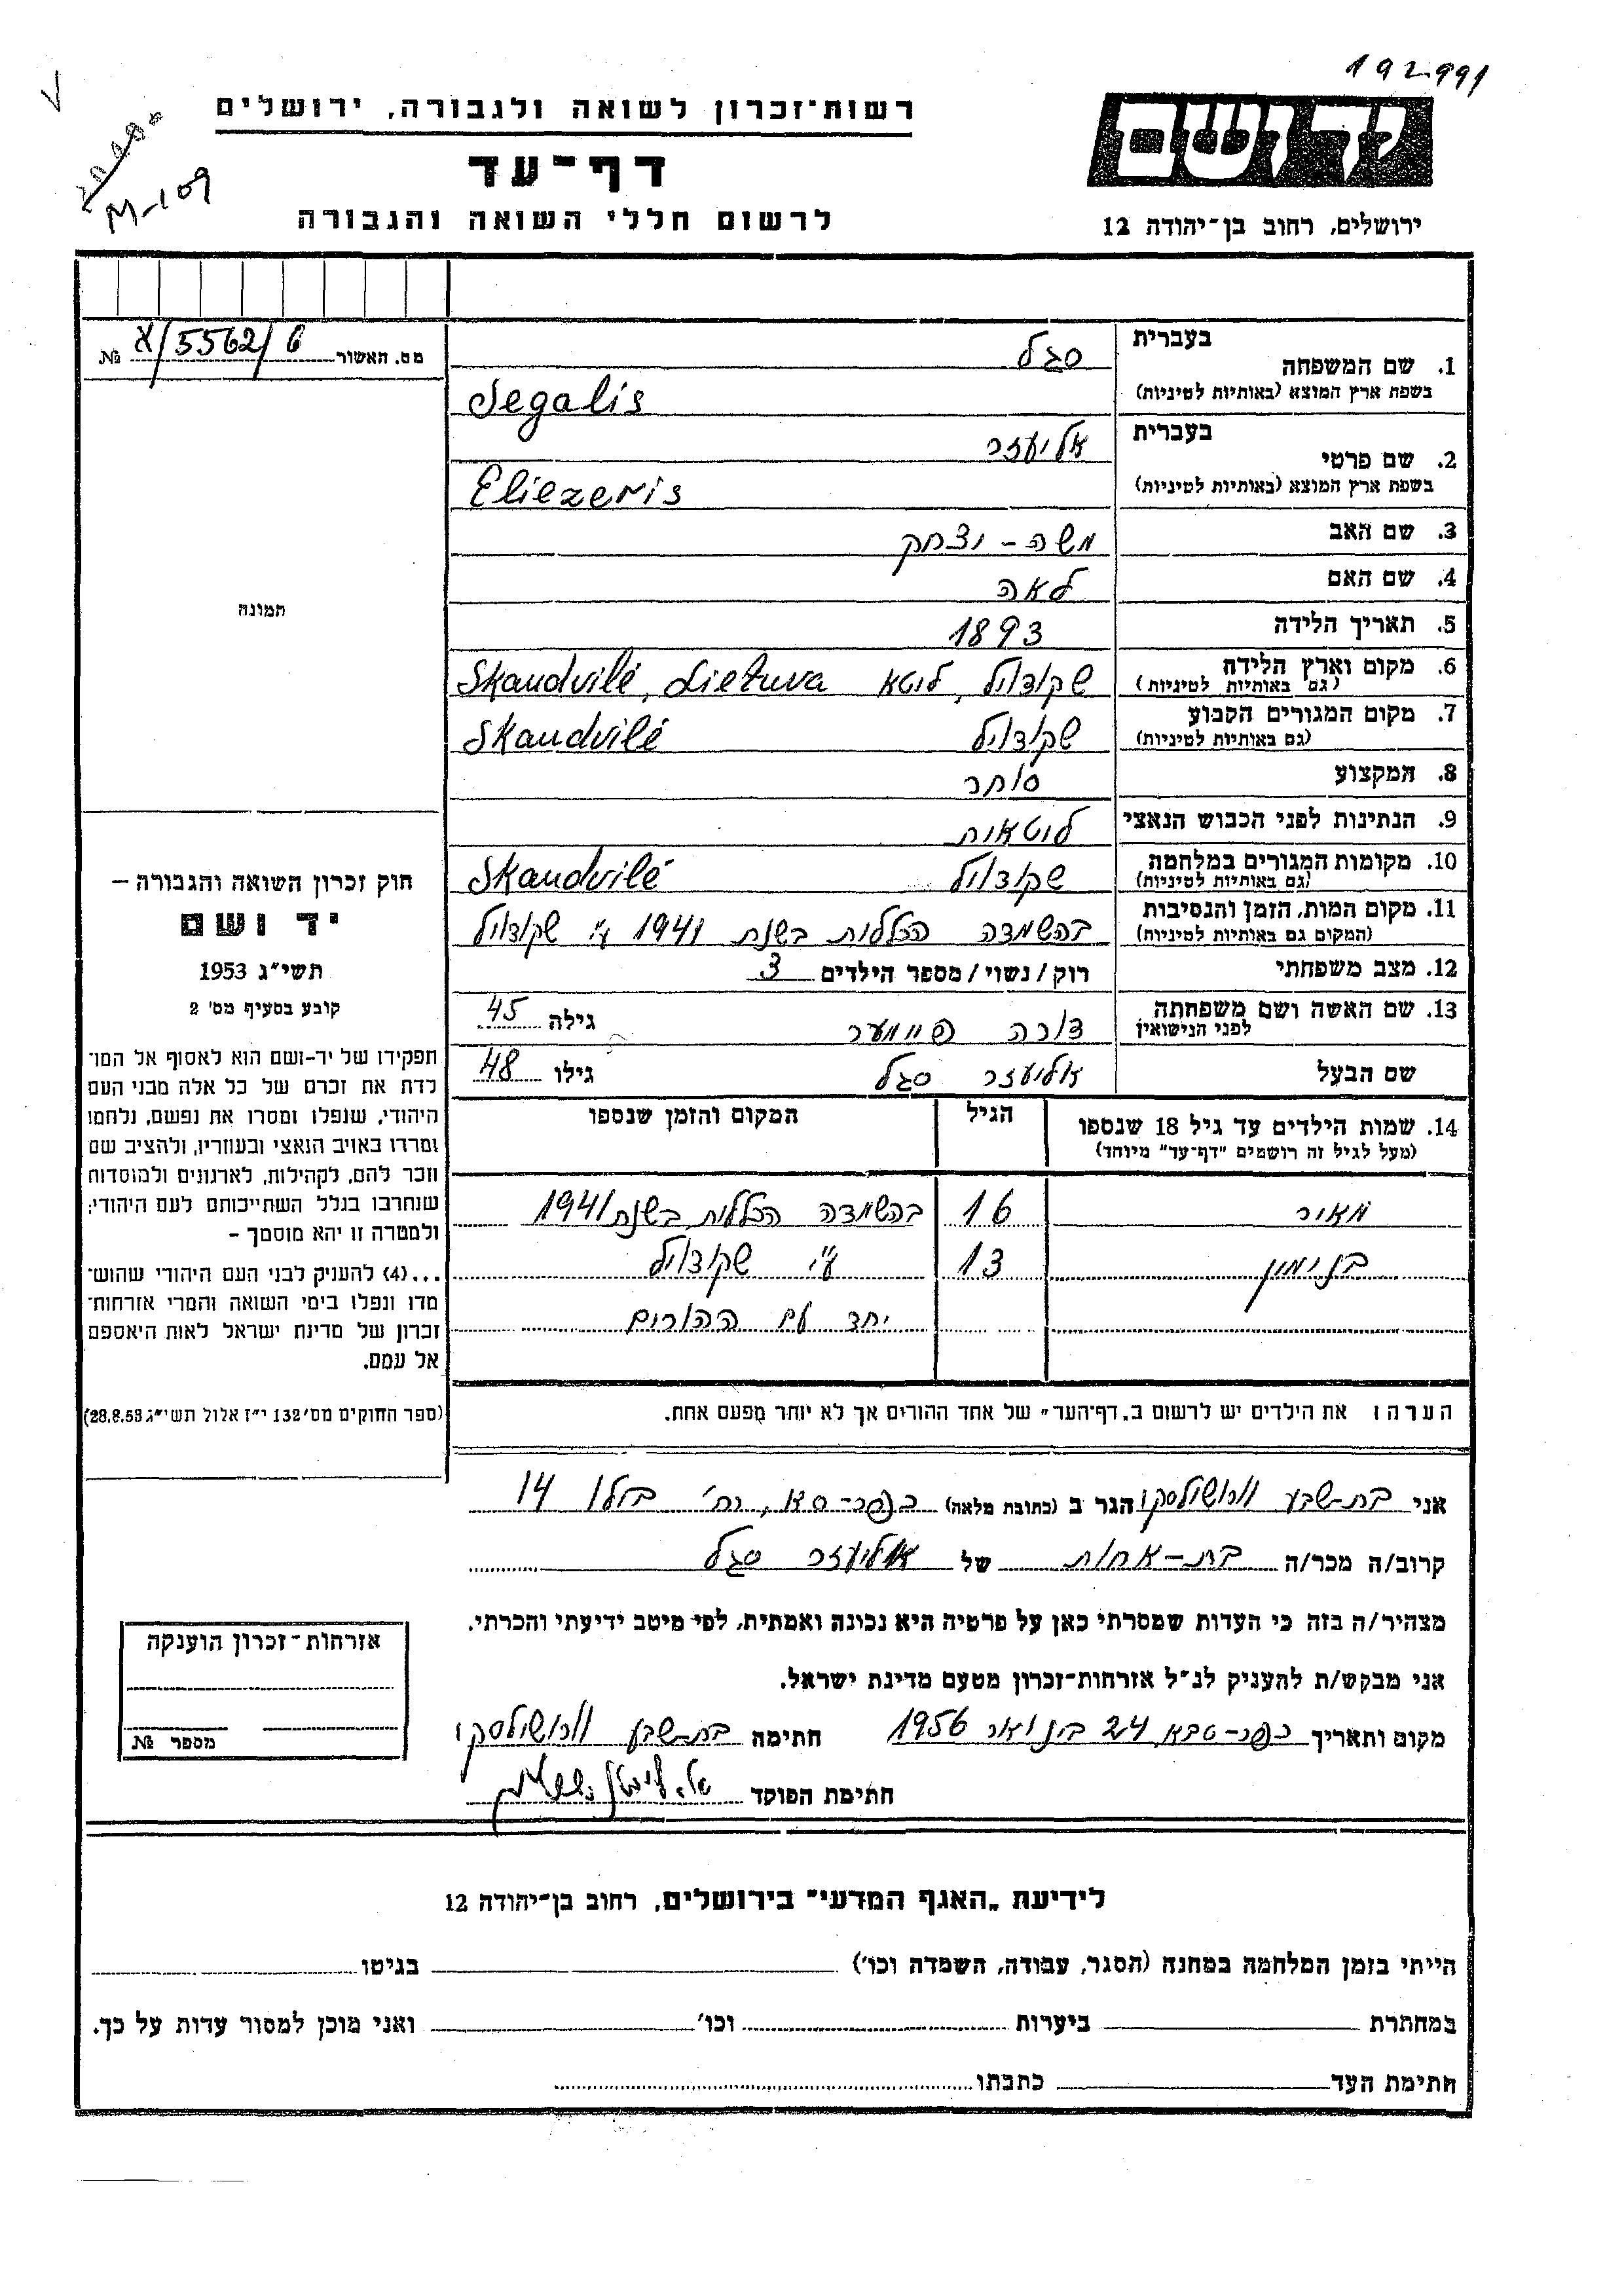 192991
רשות־זכרון לשואה ולגבורה, ירושלים
דף־עד
לרשום חללי השואה והגבורה
M-109
יד ושם
ירושלים, רחוב בן־יהודה 12
מס. האשור א/5562/6 №
תמונה
חוק זכרון השואה והגבורה –
יד ושם
תשי״ג 1953
קובע בסעיף מס׳ 2
תפקידו של יד-ושם הוא לאסוף אל המו־
לדת את זכרם של כל אלה מבני העם
היהודי, שנפלו ומסרו את נפשם, נלחמו
ומרדו באויב הנאצי ובעוזריו, ולהציב שם
וזכר להם, לקהילות, לארגונים ולמוסדות
שנחרבו בגלל השתייכותם לעם היהודי;
ולמטרה זו יהא מוסמך –
...(4) להעניק לבני העם היהודי שהוש־
מדו ונפלו בימי השואה והמרי אזרחות־
זכרון של מדינת ישראל לאות היאספם
אל עמם.
(ספר החוקים מס׳ 132 י״ז אלול תשי״ג 28.8.53)
בעברית סגל
1. שם המשפחה
בשפת ארץ המוצא (באותיות לטיניות) Segalis
בעברית אליעזר
2. שם פרטי
בשפת ארץ המוצא (באותיות לטיניות) Eliezeris
3. שם האב משה - יצחק
4. שם האם לאה
5. תאריך הלידה 1893
6. מקום וארץ הלידה שקודויל, ליטא Skaudvilė, Lietuva
(גם באותיות לטיניות)
7. מקום המגורים הקבוע שקודויל Skaudvilė
(גם באותיות לטיניות)
8. המקצוע סוחר
9. הנתינות לפני הכבוש הנאצי ליטאית
10. מקומות המגורים במלחמה שקודויל Skaudvilė
(גם באותיות לטיניות)
11. מקום המות, הזמן והנסיבות בהשמדה הכללית בשנת 1941 ע״י שקודויל
(המקום גם באותיות לטיניות)
12. מצב משפחתי רוק/נשוי/מספר הילדים 3
13. שם האשה ושם משפחתה דורה גילה 45
לפני הנישואין
שם הבעל אליעזר סגל גילו 48
14. שמות הילדים עד גיל 18 שנספו הגיל המקום והזמן שנספו
(מעל לגיל זה רושמים "דף־עד" מיוחד)
מאיר 16 בהשמדה הכללית בשנת 1941
בנימין 13 ע״י שקודויל
יחד עם ההורים
הערה: את הילדים יש לרשום ב„דף־העד״ של אחד ההורים אך לא יותר מפעם אחת.
אני בת-שבע הגר ב (כתובת מלאה) כפר-סבא, רח׳ 14
קרוב/ה מכר/ה בת-אחות של אליעזר סגל
מצהיר/ה בזה כי העדות שמסרתי כאן על פרטיה היא נכונה ואמתית, לפי מיטב ידיעתי והכרתי.
אני מבקש/ת להעניק לנ״ל אזרחות־זכרון מטעם מדינת ישראל.
מקום ותאריך כפר-סבא, 24 בינואר 1956 חתימה בת-שבע
חתימת הפוקד
אזרחות־זכרון הוענקה
מספר №
לידיעת „האגף המדעי״ בירושלים, רחוב בן־יהודה 12
הייתי בזמן המלחמה במחנה (הסגר, עבודה, השמדה וכו׳) בגיטו
במחתרת ביערות וכו׳ ואני מוכן למסור עדות על כך.
חתימת העד כתבתו